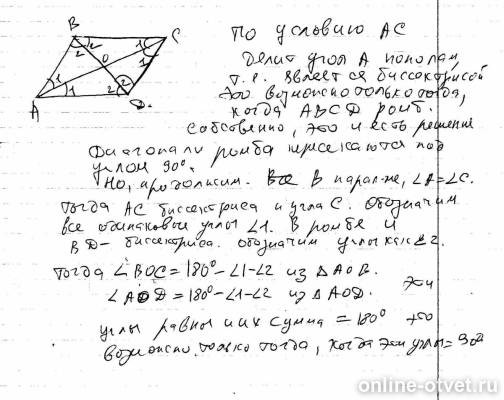 B
C
2 2
1
1
O
A
1
1
2
2
D
По условию AC
делит угол A пополам,
т.е. является биссектрисой
это возможно только тогда,
когда ABCD ромб.
Собственно, это и есть решение
Диагонали ромба пересекаются под
углом 90°.
Но, продолжим. В парал-ме, ∠A=∠C.
тогда AC биссектриса и угла C. Обозначим
все одинаковые углы ∠1. В ромбе и
BD- биссектриса. обозначим углы как ∠2.
Тогда ∠BOC=180°-∠1-∠2 из △AOB.
∠AOD=180°-∠1-∠2 из △AOD. Эти
углы равны и их сумма =180° это
возможно только тогда, когда эти углы=90°
online-otvet.ru